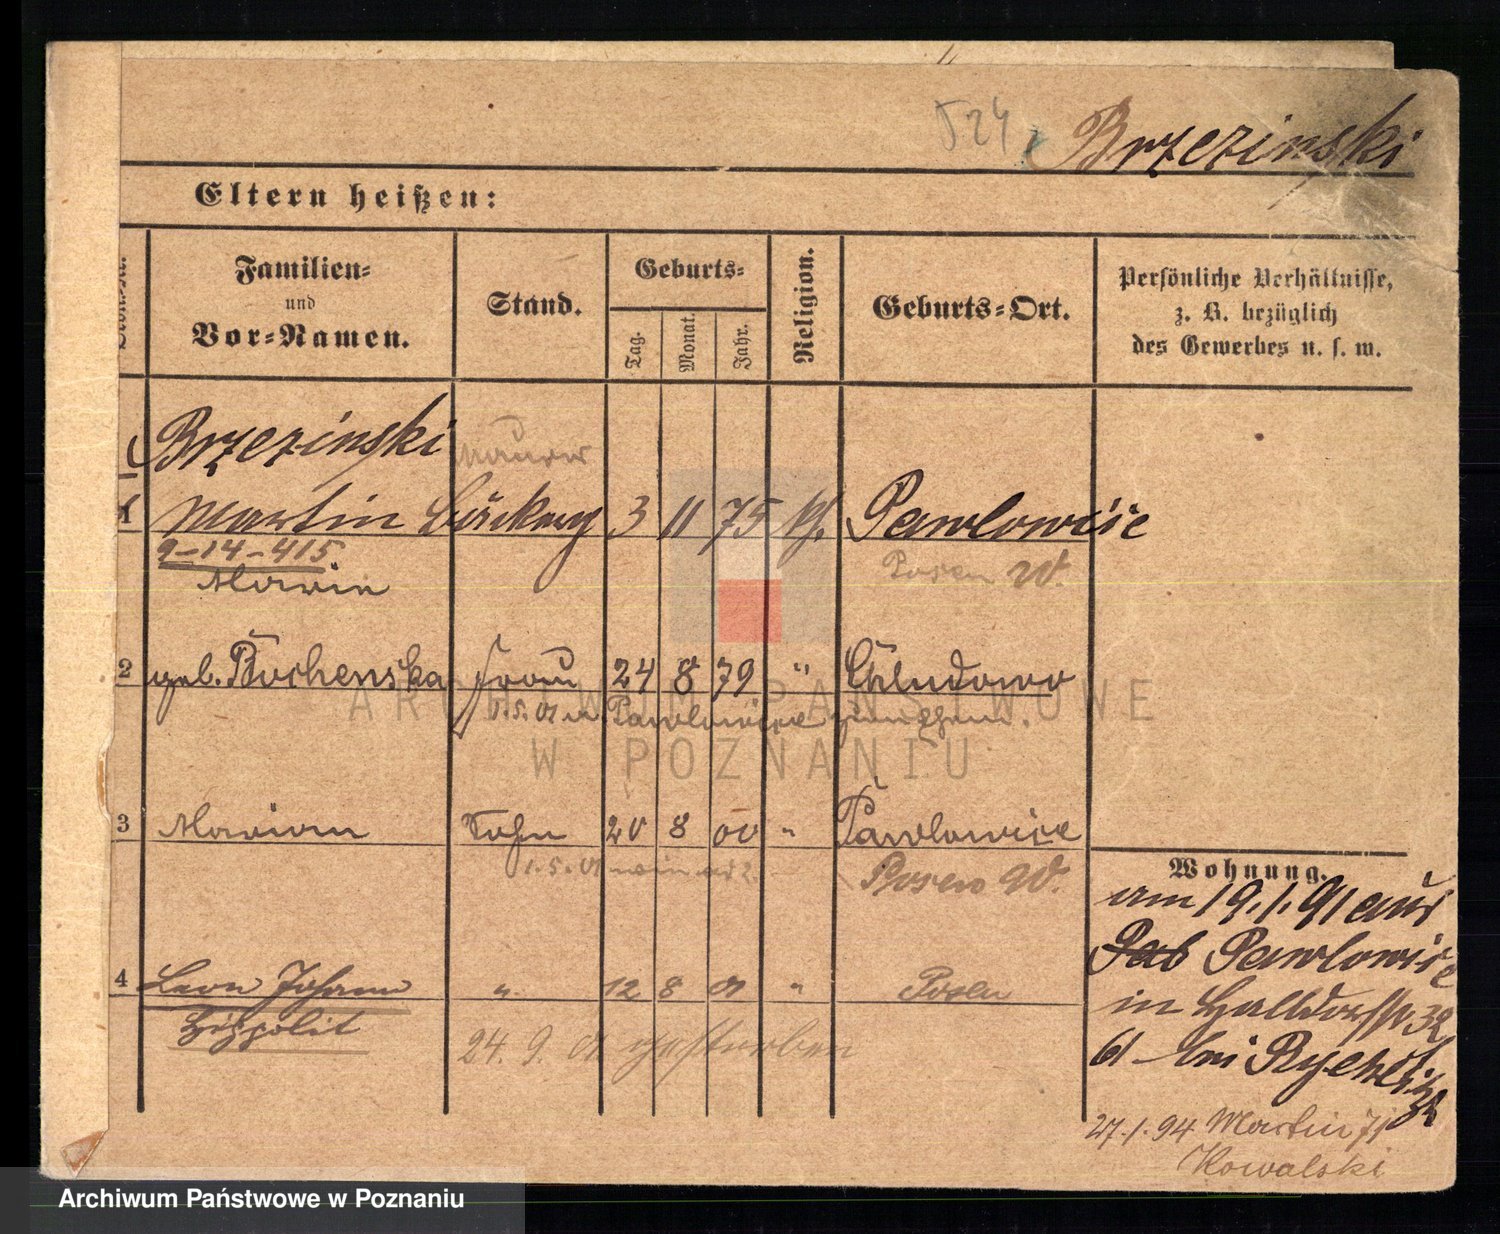 524
Brzezinski
Eltern heißen:
Familien-
und
Vor-Namen.
Stand.
Geburts-
Tag.
Monat.
Jahr.
Religion.
Geburts-Ort.
Persönliche Verhältnisse,
z. B. bezüglich
des Gewerbes u. s. w.
Brzezinski
1 Martin 3 11 75 kth. Pawlowice
9-14-415
Posen W.
2 geb. Frau 24 8 79 " Chludowo
1.5.01 Pawlowice
3 Marian Sohn 20 8 00 " Pawlowice
1.5.01
Posen W.
Wohnung.
am 19.1.91 aus
Pawlowice
in
61 bei
4 Leon Johann " 12 8 01 " Posen
Hippolit
24. 9. 01 gestorben
27.1.94 Martin 71
Kowalski
ARCHIWUM PAŃSTWOWE
W POZNANIU
Archiwum Państwowe w Poznaniu